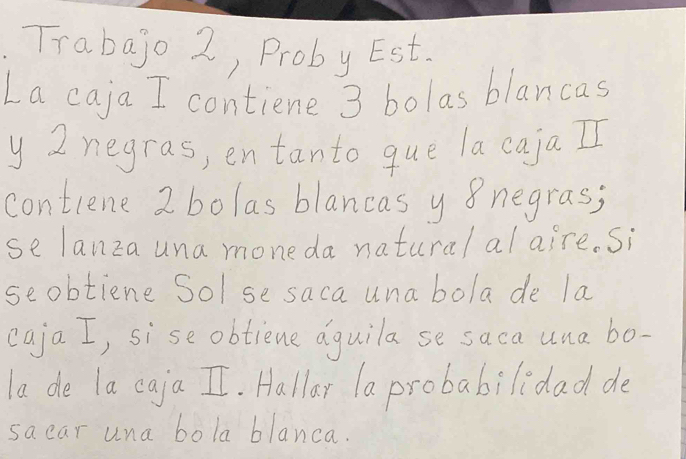 . Trabajo 2, Prob y Est.
La caja I contiene 3 bolas blancas
y 2 negras, en tanto que la caja II
contiene 2 bolas blancas y 8 negras;
se lanza una moneda natural al aire. Si
se obtiene Sol se saca una bola de la
caja I, si se obtiene águila se saca una bo-
la de la caja II. Hallar la probabilidad de
sacar una bola blanca.